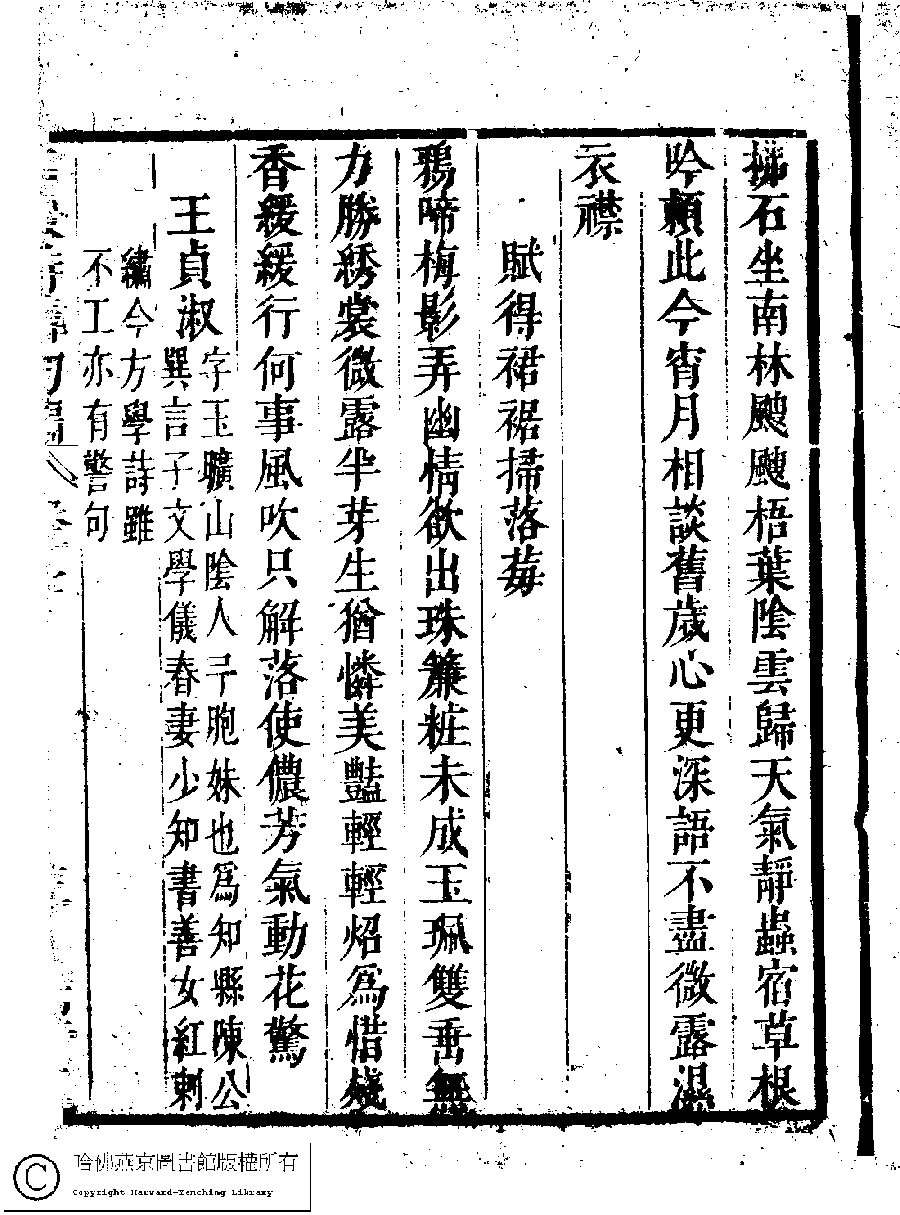 拂石坐南林颼颼梧葉陰雲歸天氣靜蟲宿草根
吟賴此今宵月相談舊歲心更深語不盡微露濕
衣襟
賦得裙裾掃落莓
鴉啼梅影弄幽情欲出珠簾粧未成玉珮雙垂無
力勝綉裳微露半芽生猶憐美豔輕輕炤爲惜殘
香緩緩行何事風吹只解落使儂芳氣動花驚
王貞淑
字玉曠山陰人予胞妹也爲知縣陳公
巽言子文學儀春妻少知書善女紅刺
繡今方學詩雖
不工亦有警句
哈佛燕京圖書館版權所有
Copyright Harvard-Yenching Library